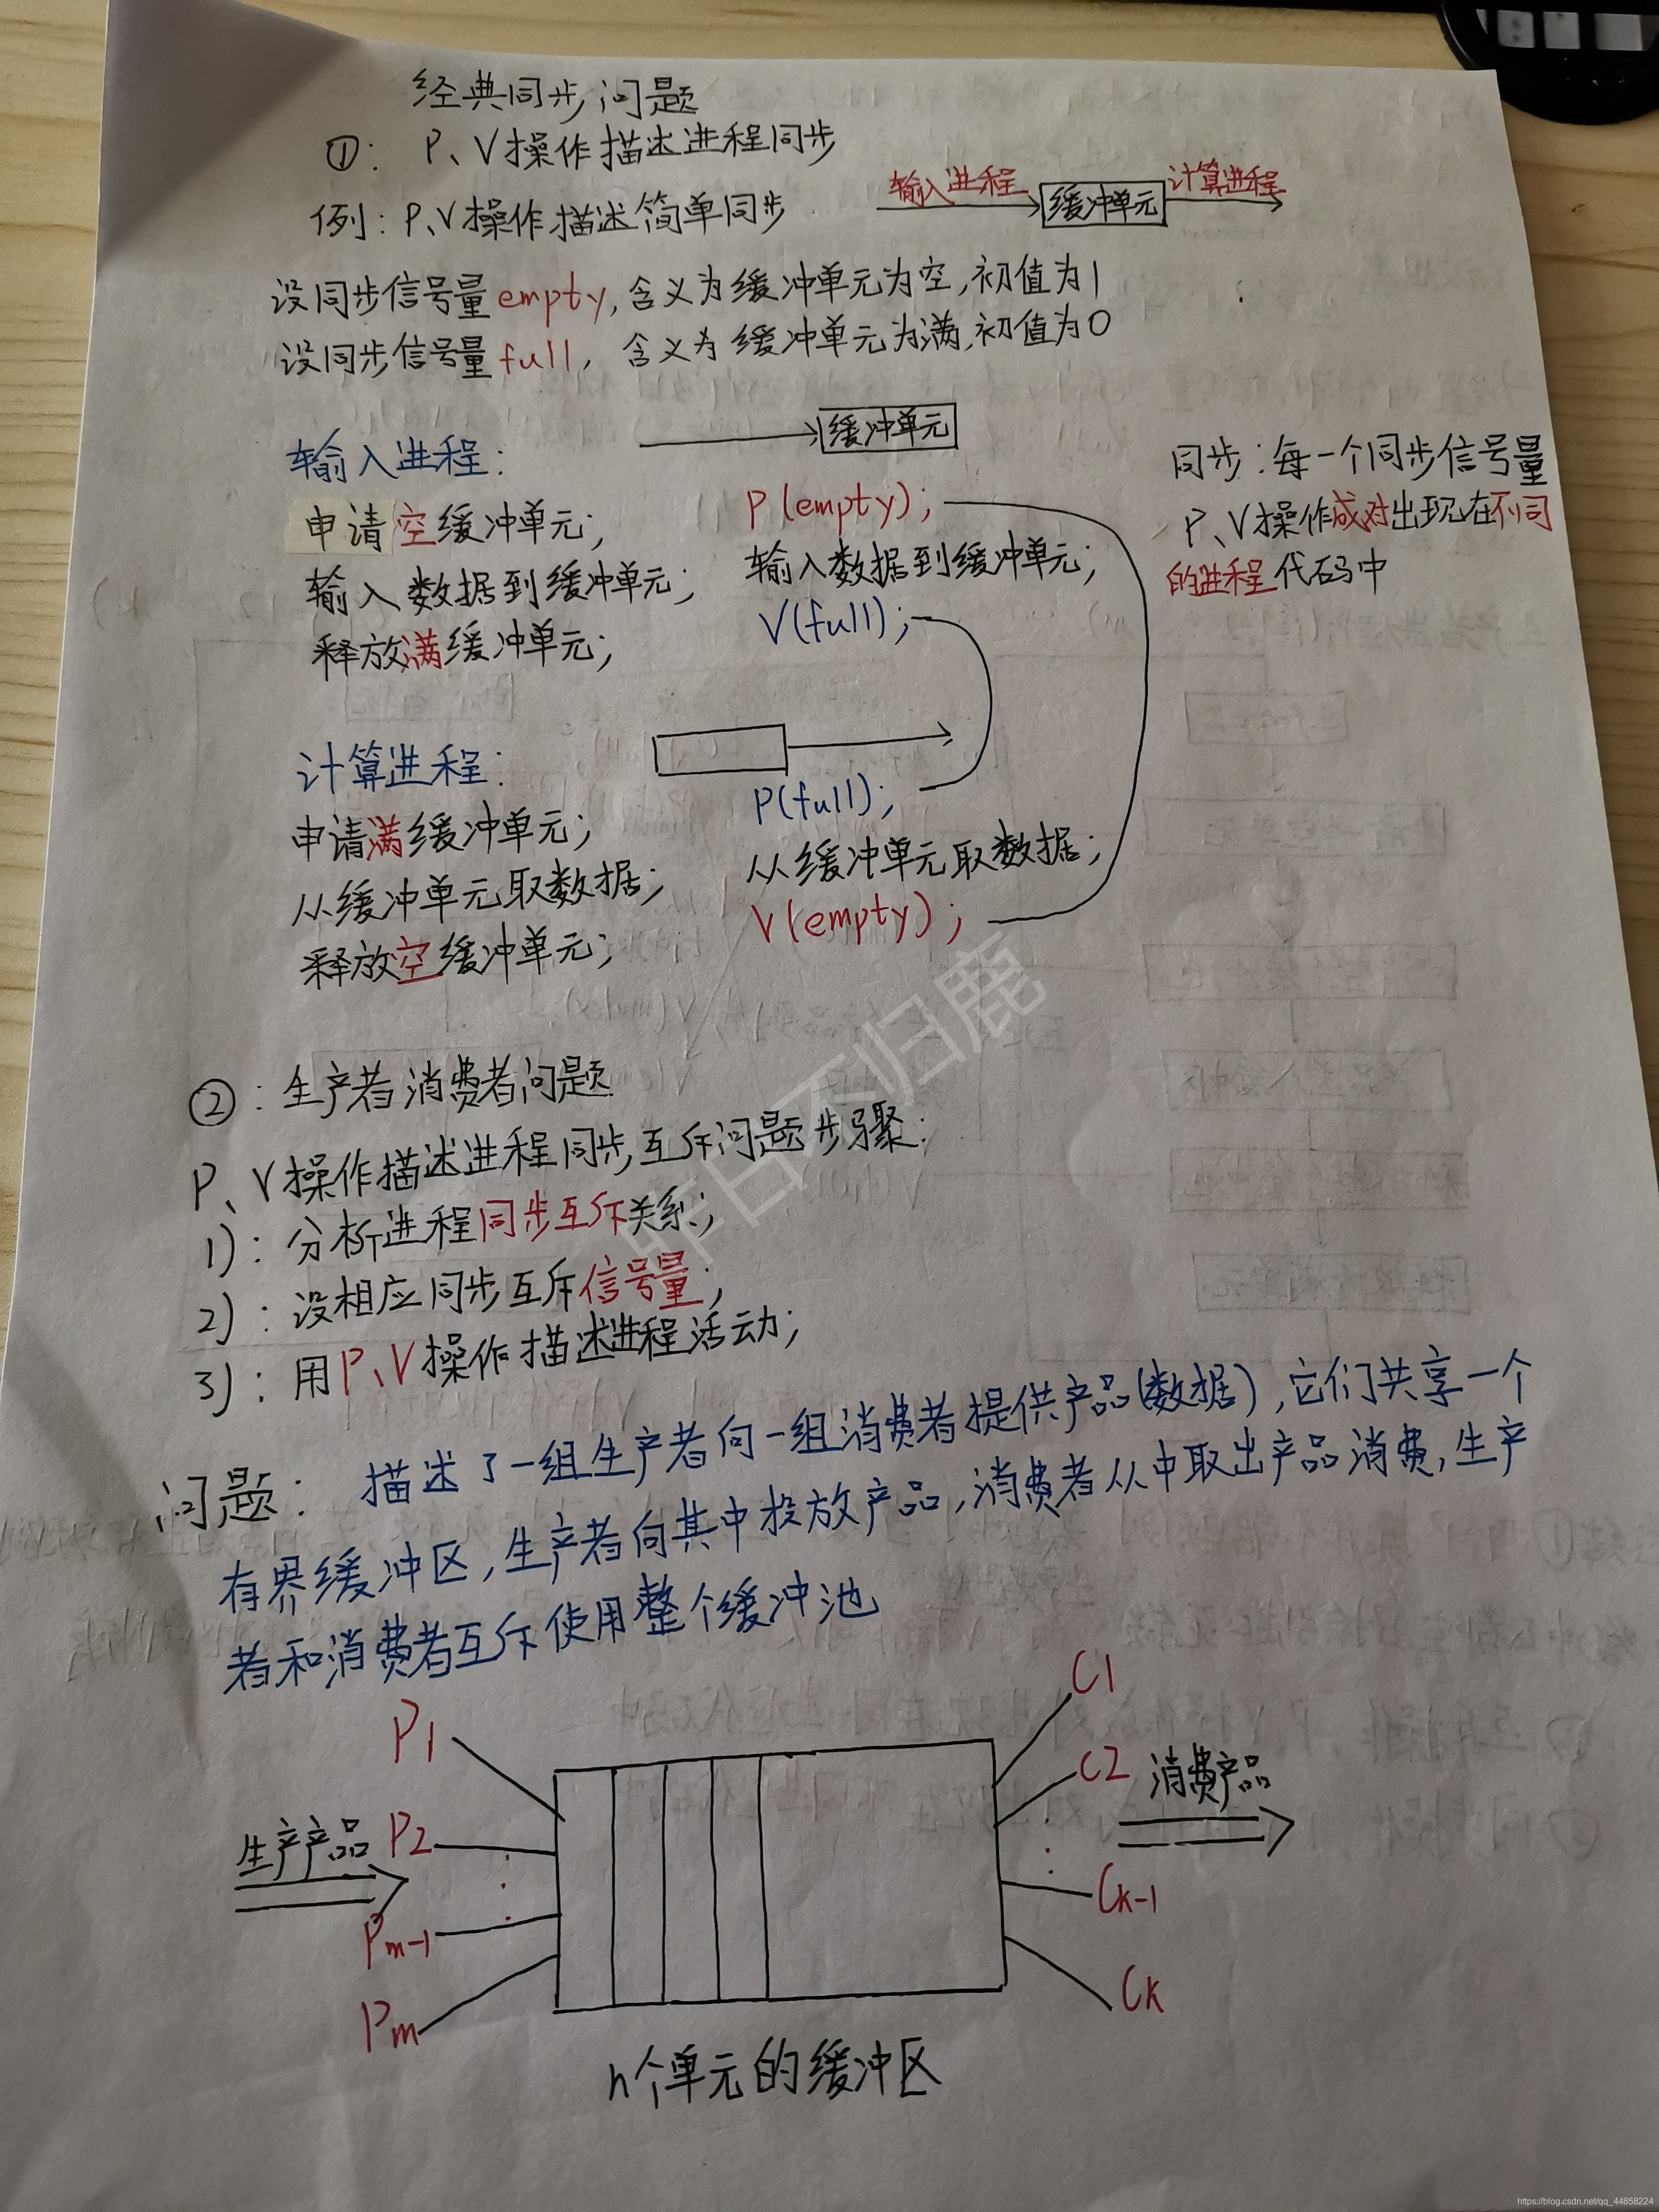 经典同步问题
①：P、V操作描述进程同步
例：P、V操作描述简单同步
输入进程 缓冲单元 计算进程
设同步信号量empty，含义为缓冲单元为空，初值为1
设同步信号量full，含义为缓冲单元为满，初值为0
缓冲单元
输入进程：
申请空缓冲单元；
输入数据到缓冲单元；
释放满缓冲单元；
P(empty);
输入数据到缓冲单元；
V(full);
同步：每一个同步信号量
P、V操作成对出现在不同
的进程代码中
计算进程：
申请满缓冲单元；
从缓冲单元取数据；
释放空缓冲单元；
P(full);
从缓冲单元取数据；
V(empty);
②：生产者消费者问题
P、V操作描述进程同步互斥问题步骤：
1)：分析进程同步互斥关系；
2)：设相应同步互斥信号量；
3)：用P、V操作描述进程活动；
问题：描述了一组生产者向一组消费者提供产品(数据)，它们共享一个
有界缓冲区，生产者向其中投放产品，消费者从中取出产品消费，生产
者和消费者互斥使用整个缓冲池
P1
P2
Pm-1
Pm
生产产品
C1
C2
Ck-1
Ck
消费产品
n个单元的缓冲区
昨日不归鹿
https://blog.csdn.net/qq_44858224